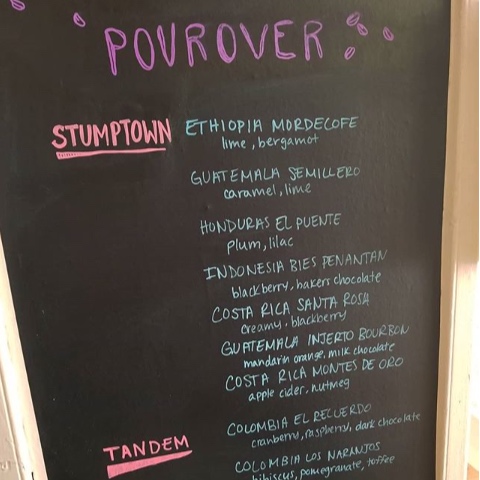 POUROVER
STUMPTOWN
ETHIOPIA MORDECOFE
lime, bergamot
GUATEMALA SEMILLERO
caramel, lime
HONDURAS EL PUENTE
plum, lilac
INDONESIA BIES PENANTAN
blackberry, bakers chocolate
COSTA RICA SANTA ROSA
creamy, blackberry
GUATEMALA INJERTO BOURBON
mandarin orange, milk chocolate
COSTA RICA MONTES DE ORO
apple cider, nutmeg
TANDEM
COLOMBIA EL RECUERDO
cranberry, raspberry, dark chocolate
COLOMBIA LOS NARANJOS
hibiscus, pomegranate, toffee